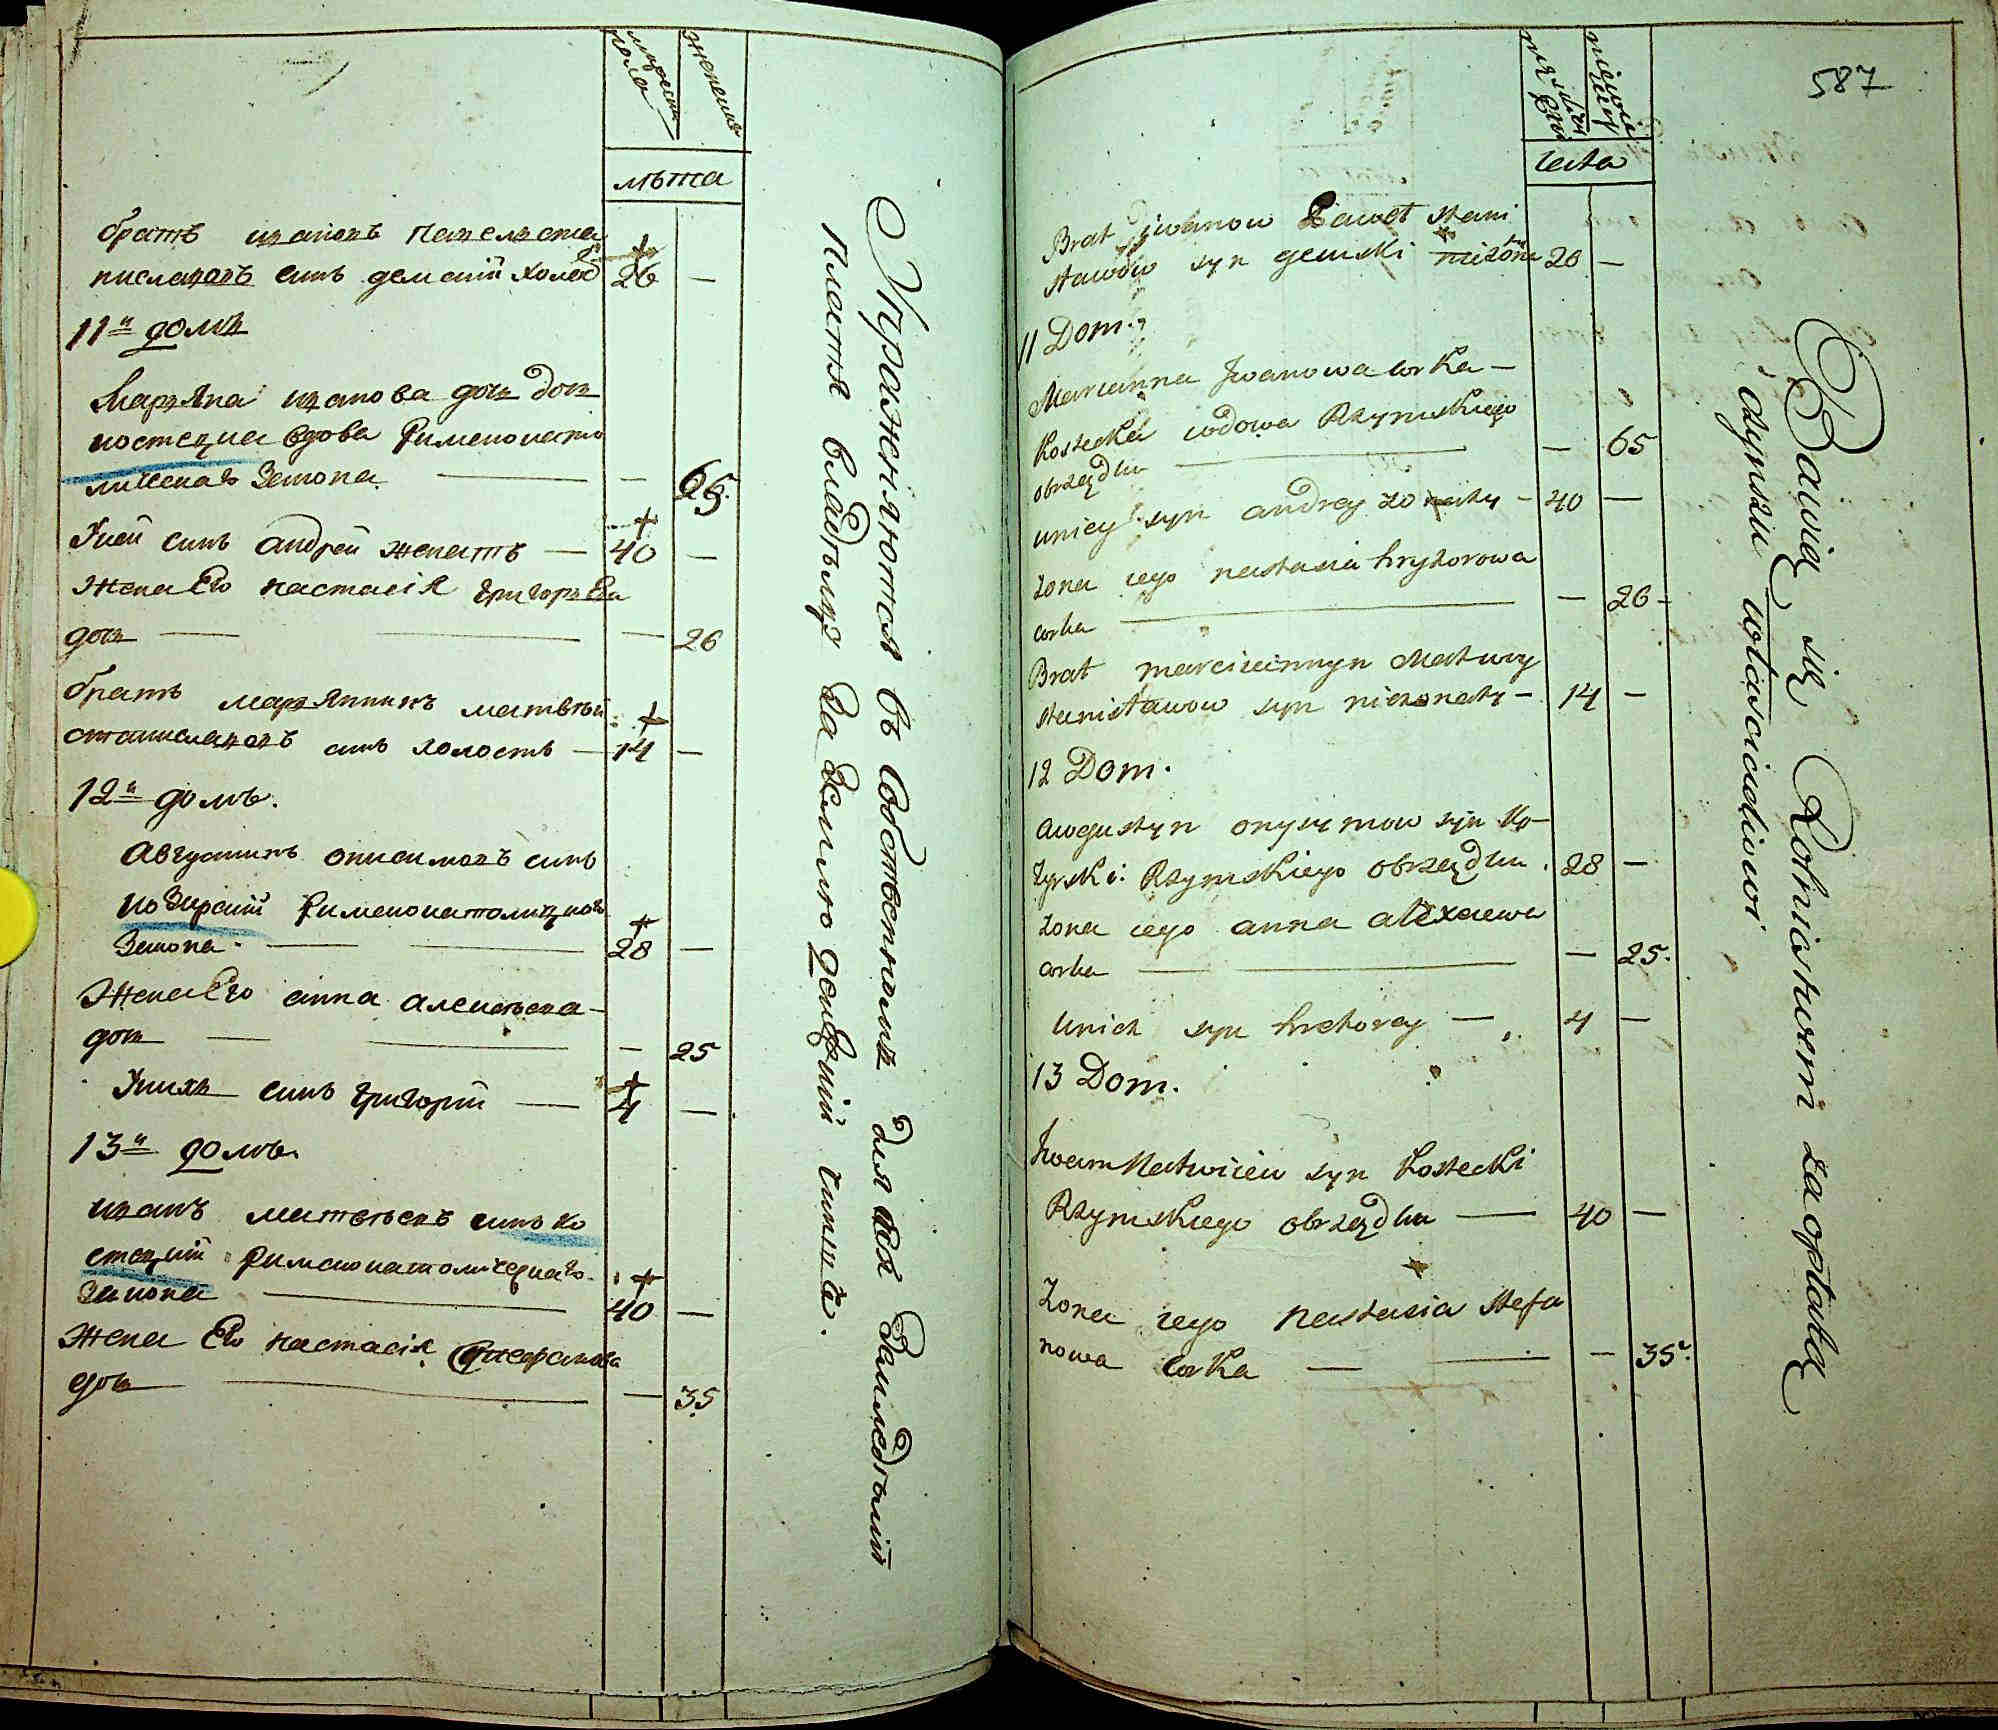 мужеска
пола
женска
лѣта
братъ ивановъ павелъ ста
ниславовъ синъ демскій холос 26 —
11й домъ
Маръяна иванова дочъ
костецка вдова Римскокато
лическаго Закона — — 65.
Уней синъ андрей женатъ — 40 —
Жена Его настасія григорьева
дочъ — — — 26
братъ маръянинъ матвѣй
станиславовъ синъ холостъ — 14 —
12й домъ.
августинъ онисимовъ синъ
козирскій Римскокатолицкого
Закона — — 28 —
Жена Его анна алексѣева
дочъ — — — 25
Унихъ синъ григорий — 4 —
13й домъ.
иванъ матвѣевъ синъ ко
стецкій Римскокатолическаго
Закона — 40 —
Жена Его настасія Стефанова
дочъ — — 35
Упражняются въ собственномъ для себя Замледѣлій
платя владѣлцу за землю денежний чиншъ.
587
męzkiey
płci
niewieściey
Leta
Brat Jwanow Paweł Stani
sławow syn Gemski nieżona 26 —
11 Dom.
Marianna Jwanowa Corka —
Kostecka wdowa Rzymskiego
obrzędku — — 65
uniey syn andrey żonaty — 40 —
żona iego nastasia hryhorowa
corka — — 26 —
Brat marciannyn Matwiy
Stanisławow syn nieżonaty — 14 —
12 Dom.
Awgustyn onysymow syn Ko—
zyrski Rzymskiego obrzędku. 28 —
żona iego anna alexiewa
corka — — — 25.
Unich syn hrehorey — 4 —
13 Dom.
Jwan Matwieiw syn Kostecki
Rzymskiego obrzędku — 40 —
Zona iego Nastasia Stefa
nowa Corka — — — 35.
Bawią się Rolnictwem za opłatą
czynszu włascicielowi